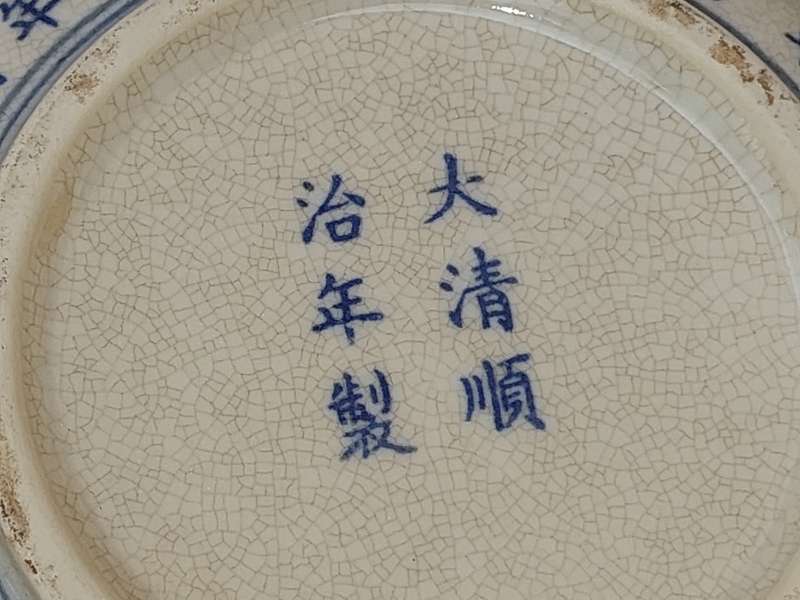 大清順
治年製